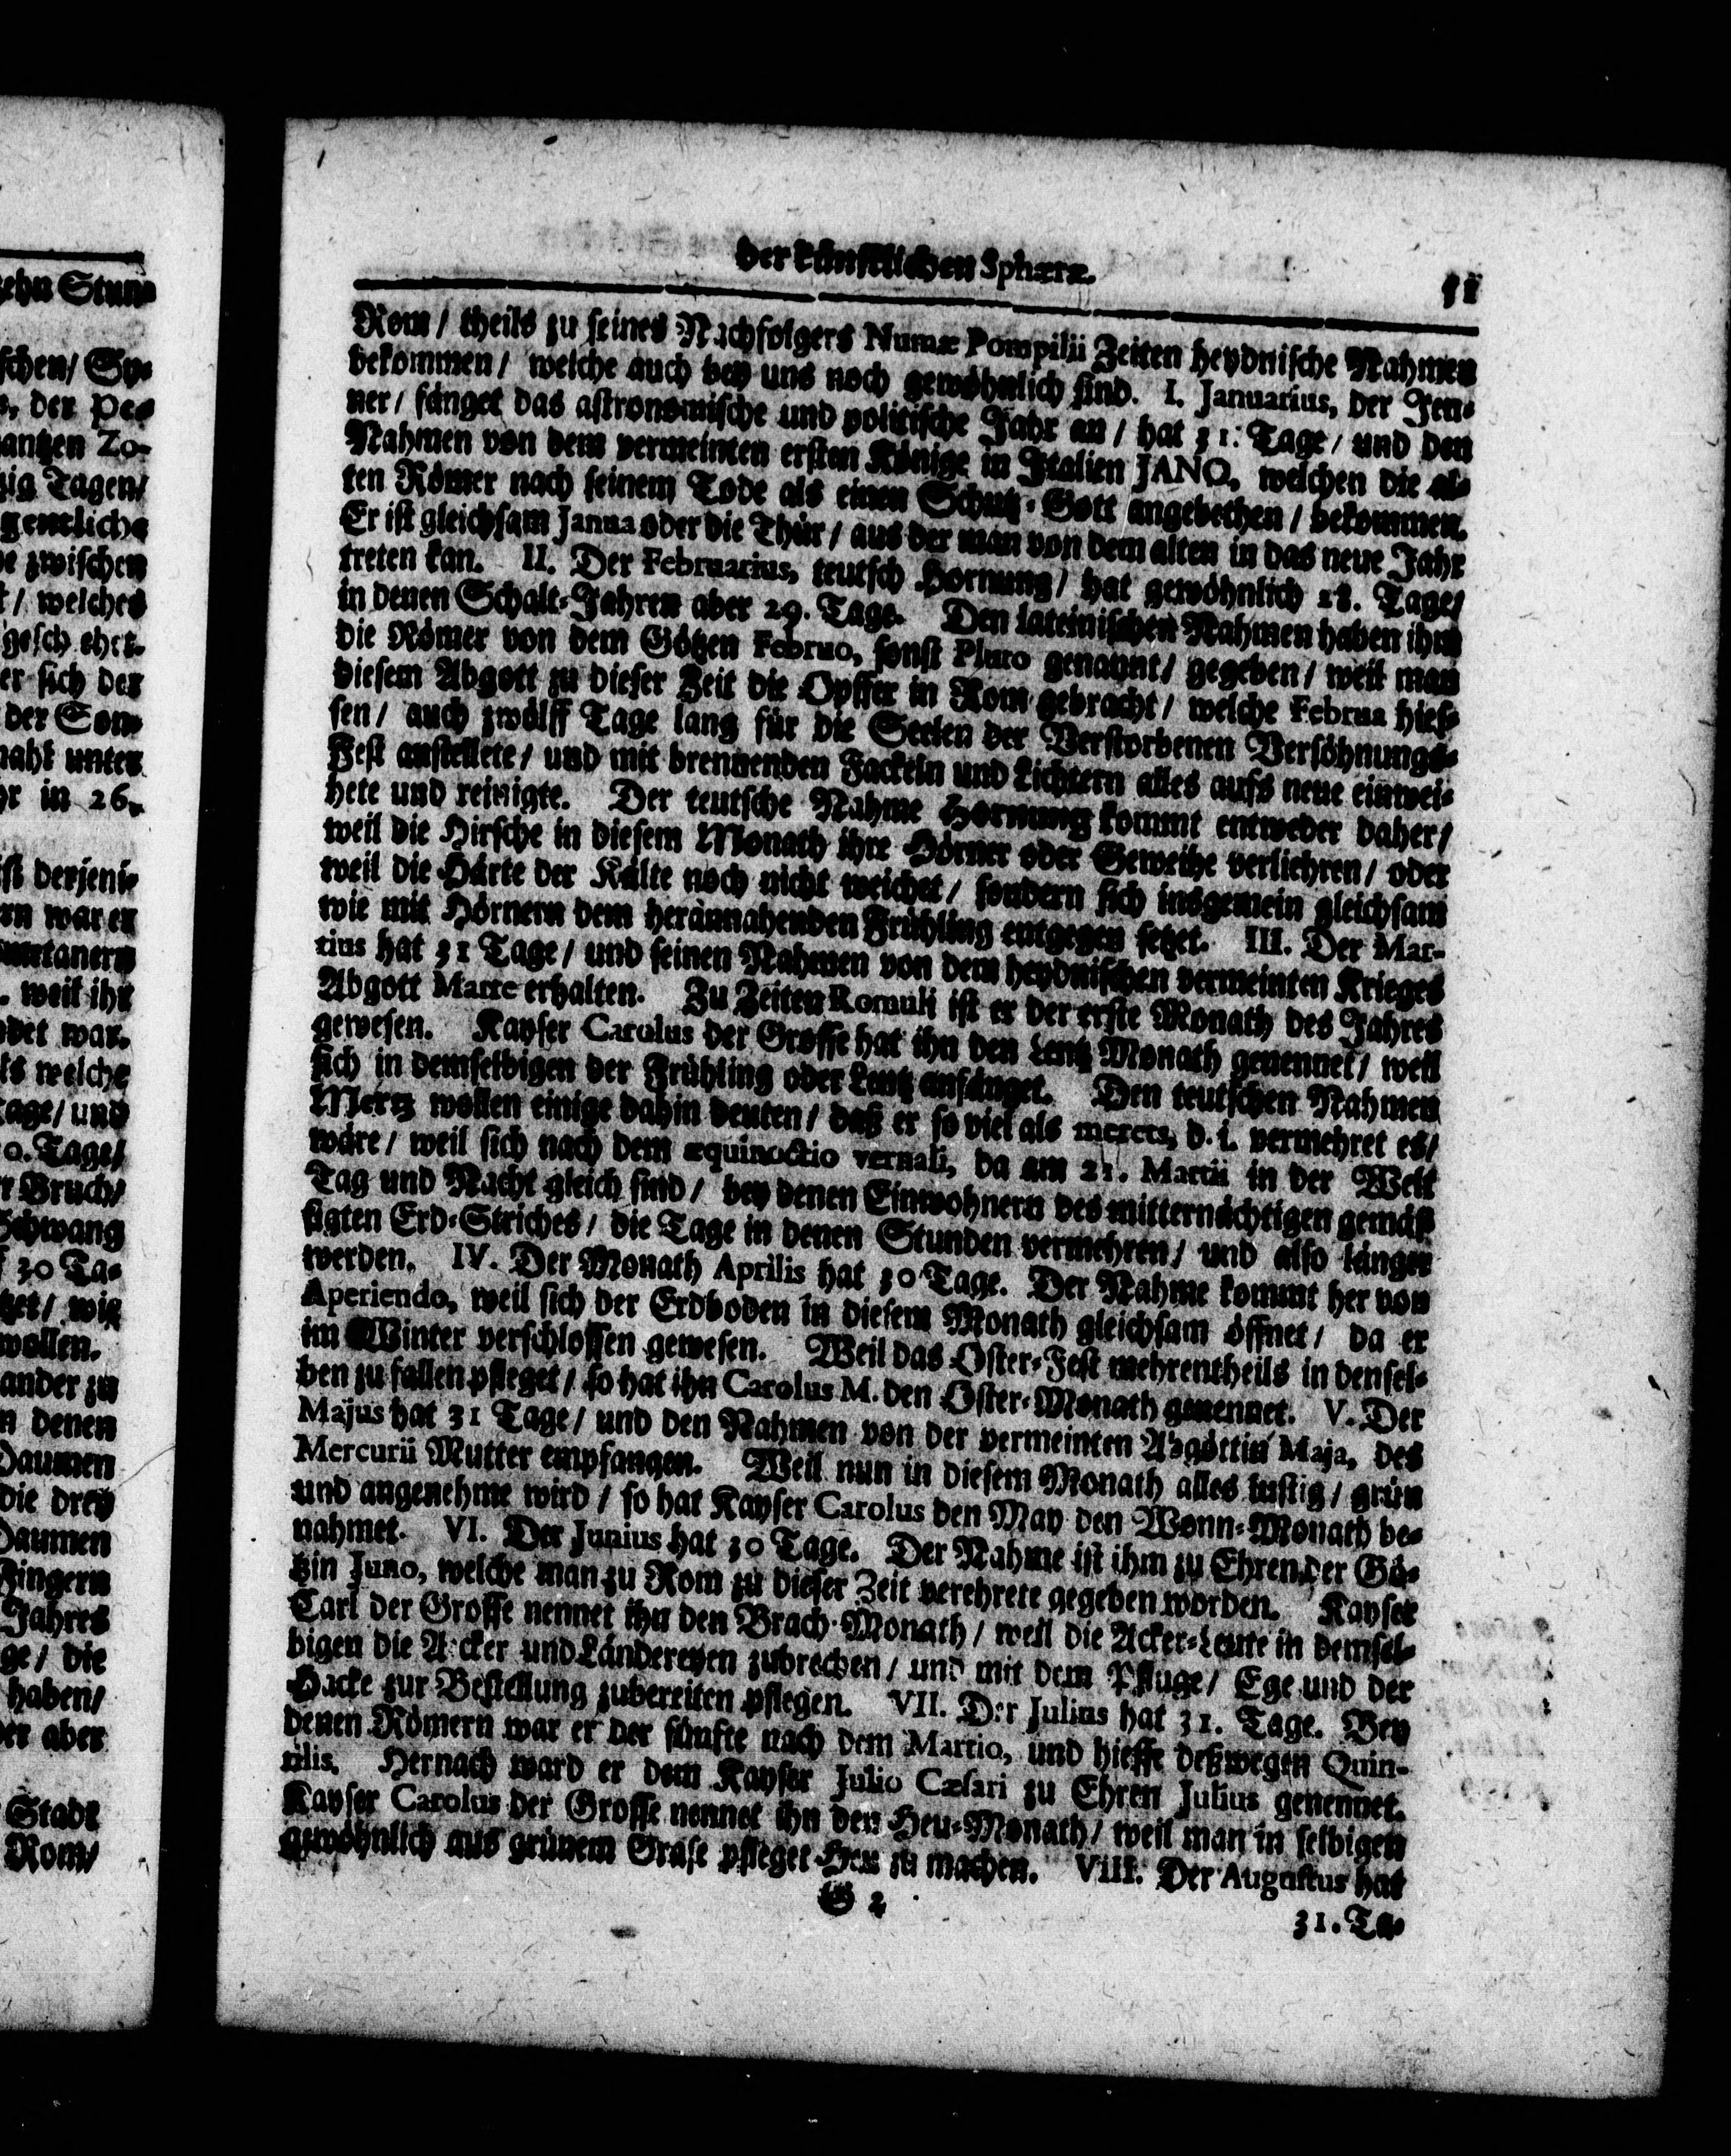 der künstlichen Sphæræ.
51
Rom / theils zu seines Nachfolgers Numæ Pompilii Zeiten heydnische Nahmen
bekommen / welche auch bey uns noch gewöhnlich sind. I. Januarius, der Jen-
ner / fänget das astronomische und politische Jahr an / hat 31. Tage / und den
Nahmen von dem vermeinten ersten Könige in Italien JANO, welchen die al-
ten Römer nach seinem Tode als einen Schutz-Gott angebethen / bekommen.
Er ist gleichsam Janua oder die Thür / aus der man von dem alten in das neue Jahr
treten kan. II. Der Februarius, teutsch Hornung / hat gewöhnlich 28. Tage /
in denen Schalt-Jahren aber 29. Tage. Den lateinischen Nahmen haben ihm
die Römer von dem Götzen Februo, sonst Pluto genannt / gegeben / weil man
diesem Abgott zu dieser Zeit die Opffer in Rom gebracht / welche Februa hies-
sen / auch zwölff Tage lang für die Seelen der Verstorbenen Versöhnungs-
Fest anstellete / und mit brennenden Fackeln und Lichtern alles aufs neue einwei-
hete und reinigte. Der teutsche Nahme Hornung kommt entweder daher /
weil die Hirsche in diesem Monath ihre Hörner oder Geweihe verliehren / oder
weil die Härte der Kälte noch nicht weichet / sondern sich insgemein gleichsam
wie mit Hörnern dem herannahenden Frühling entgegen setzet. III. Der Mar-
tius hat 31 Tage / und seinen Nahmen von dem heydnischen vermeinten Krieges
Abgott Marte erhalten. Zu Zeiten Romuli ist er der erste Monath des Jahres
gewesen. Kayser Carolus der Grosse hat ihn den Lentz Monath genennet / weil
sich in demselbigen der Frühling oder Lentz anfänget. Den teutschen Nahmen
Mertz wollen einige dahin deuten / daß er so viel als merets, d. i. vermehret es /
wäre / weil sich nach dem æquinoctio vernali, da am 21. Martii in der Welt
Tag und Nacht gleich sind / bey denen Einwohnern des mitternächtigen gemäß
sigten Erd-Striches / die Tage in denen Stunden vermehren / und also länger
werden. IV. Der Monath Aprilis hat 30 Tage. Der Nahme kommt her von
Aperiendo, weil sich der Erdboden in diesem Monath gleichsam öffnet / da er
im Winter verschlossen gewesen. Weil das Oster-Fest mehrentheils in densel-
ben zu fallen pfleget / so hat ihn Carolus M. den Oster-Monath genennet. V. Der
Majus hat 31 Tage / und den Nahmen von der vermeinten Abgöttin Maja, des
Mercurii Mutter empfangen. Weil nun in diesem Monath alles lustig / grün
und angenehme wird / so hat Kayser Carolus den May den Wonn-Monath be-
nahmet. VI. Der Junius hat 30 Tage. Der Nahme ist ihm zu Ehren der Gö-
tzin Juno, welche man zu Rom zu dieser Zeit verehrete gegeben worden. Kayser
Carl der Grosse nennet ihn den Brach-Monath / weil die Acker-Leute in demsel-
bigen die Aecker und Ländereyen zubrechen / und mit dem Pfluge / Ege und der
Hacke zur Bestellung zubereiten pflegen. VII. Der Julius hat 31. Tage. Bey
denen Römern war er der fünfte nach dem Martio, und hiesse deßwegen Quin-
tilis. Hernach ward er dem Kayser Julio Cæsari zu Ehren Julius genennet.
Kayser Carolus der Grosse nennet ihn den Heu-Monath / weil man in selbigen
gewöhnlich aus grünem Grase pfleget Heu zu machen. VIII. Der Augustus hat
G 2
31. Ta-
zehn Stun-
schen / Sy-
der Pe-
antzen Zo-
zig Tagen /
gentliche
zwischen
/ welches
gesch ehet.
er sich der
der Son-
naht unter
in 26.
ist derjeni-
war er
weil ihr
det war.
welche
tage / und
0. Tage /
Bruch /
Schwang
30 Ta-
/ wie
wollen.
ander zu
denen
Daumen
die drey
Daumen
Fingern
Jahres
ge / die
haben /
er aber
Stadt
Rom /